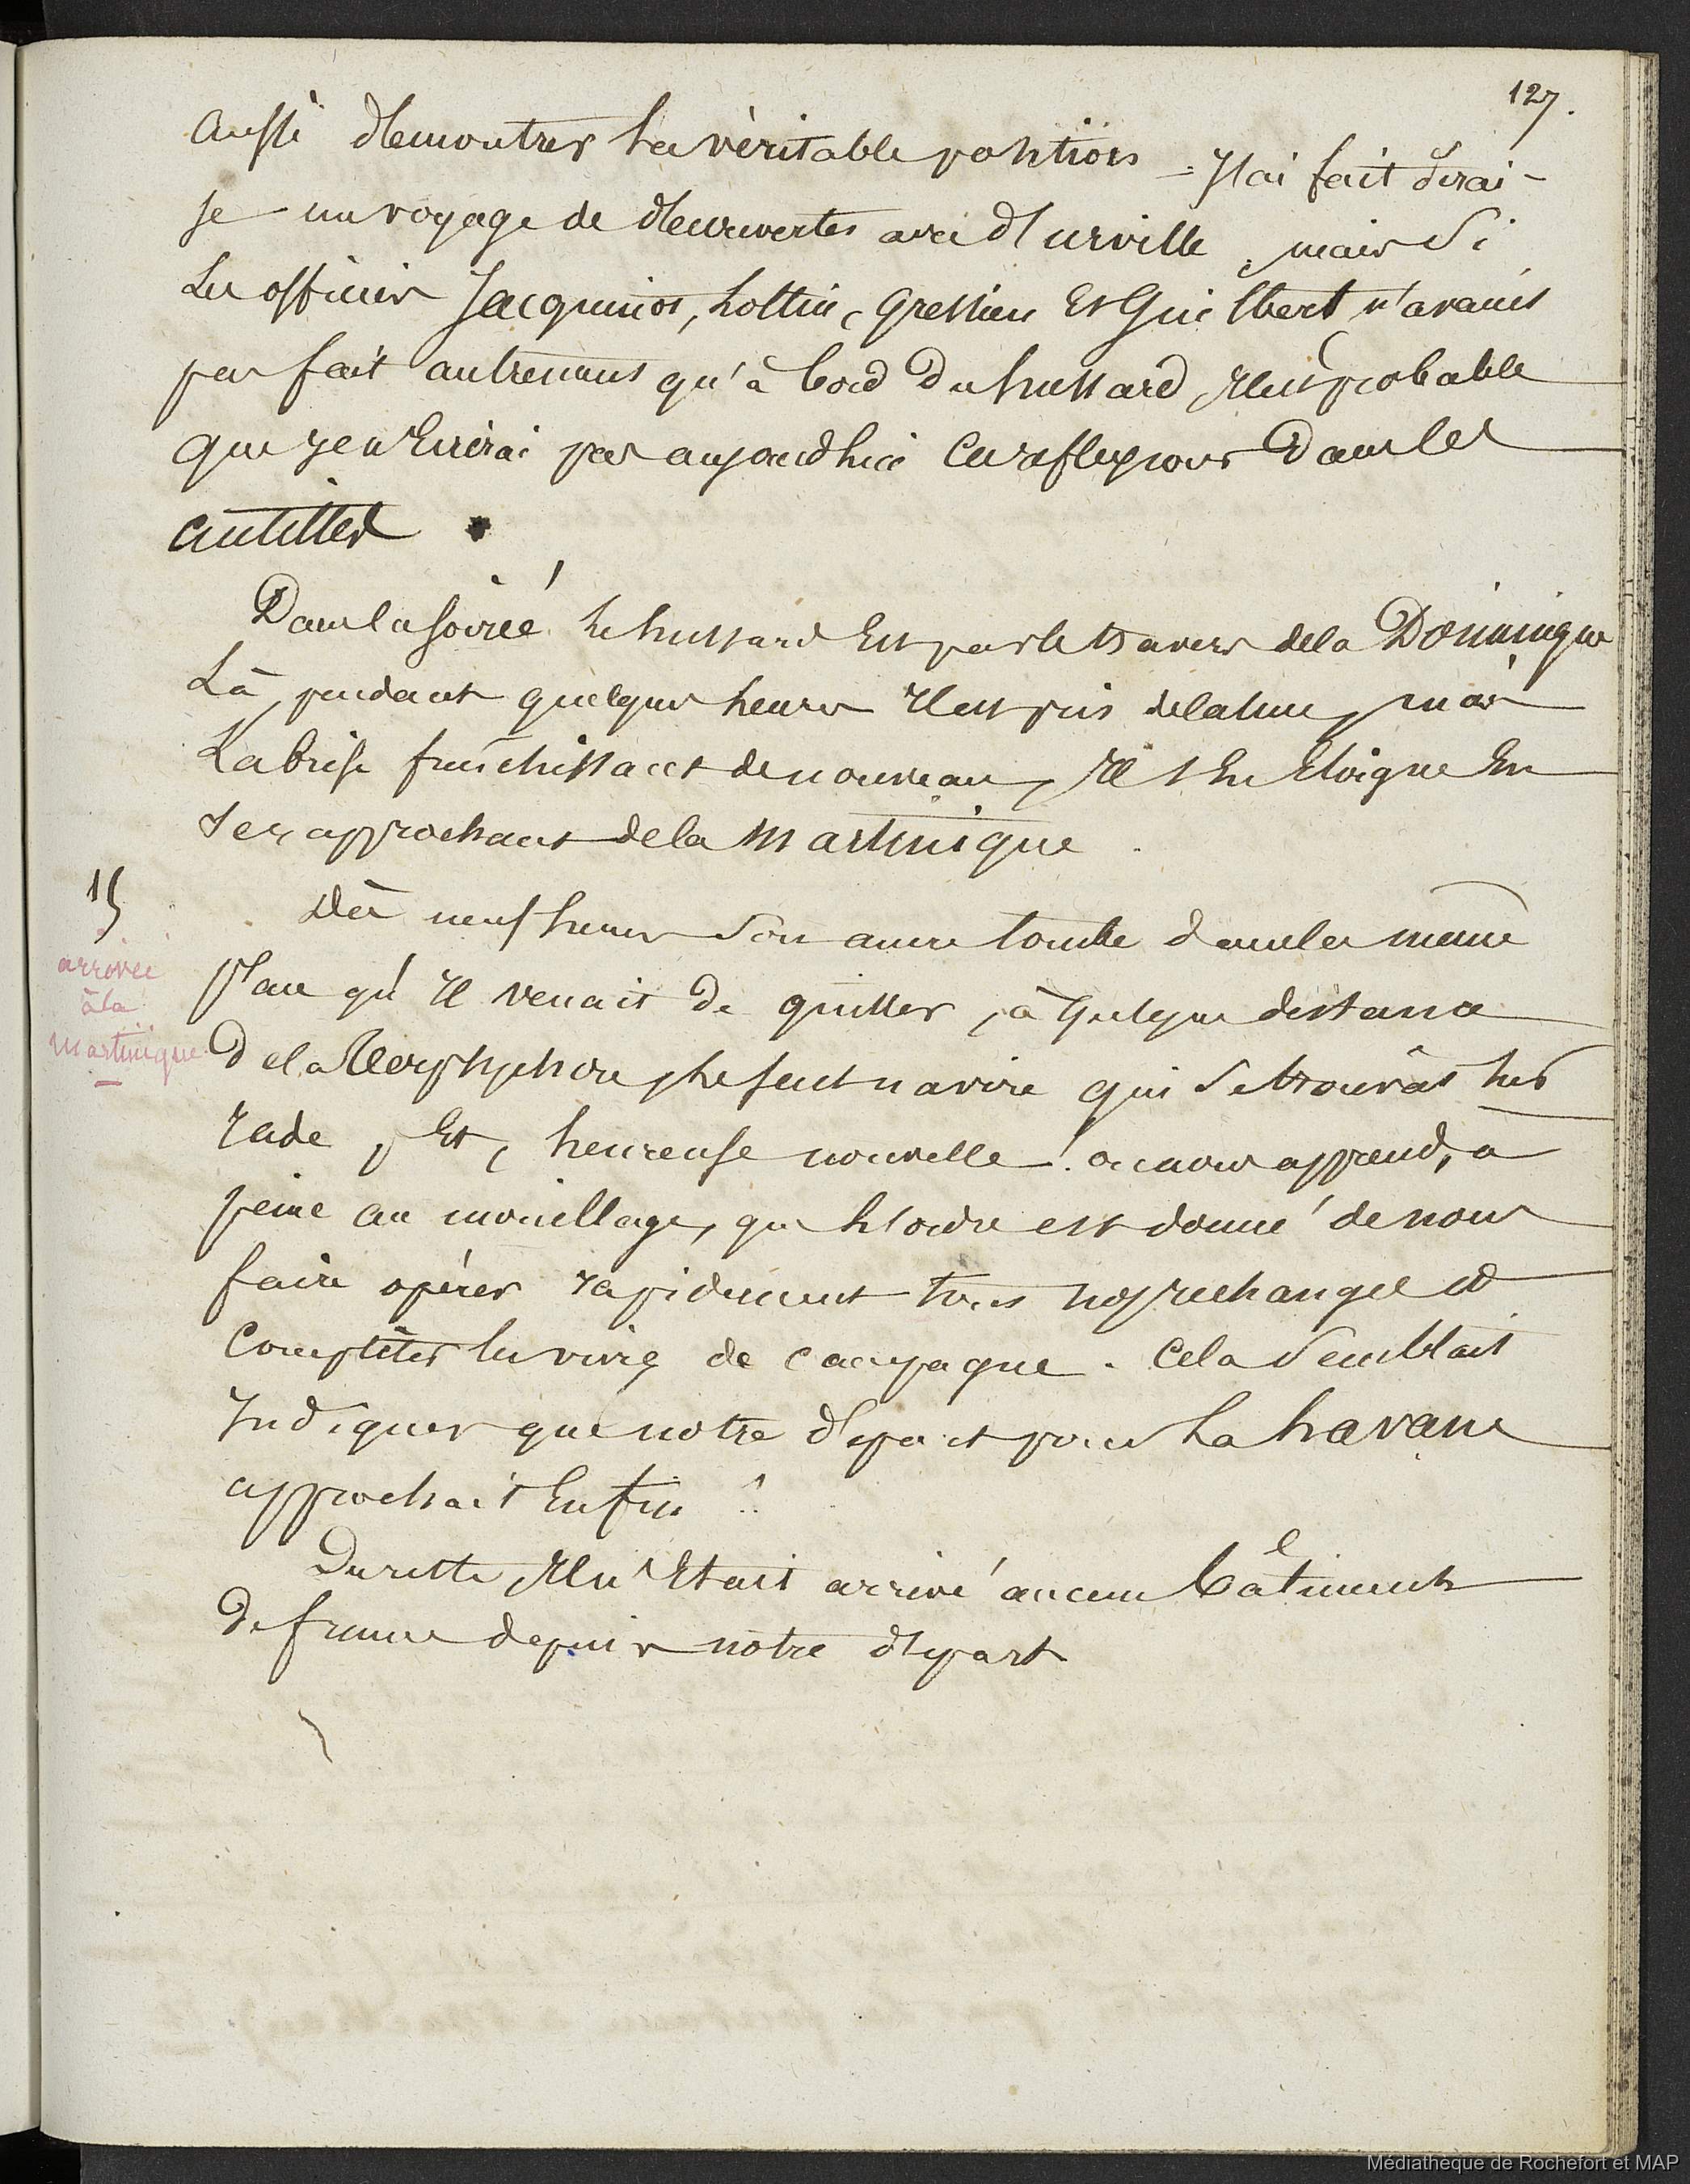 127.
aussi démontrer la véritable position = J'ai fait dirai-
je un voyage de découvertes avec d'Urville, mais si
les officiers Jacquinot, Lottin, Gressien et Guilbert n'avaient
pas fait autrement qu'à bord du hussard, il est probable
que je n'écrirai pas aujourdhui ces réflexions dans les
antilles.
Dans la soirée le hussard est par le travers de la Dominique
Là, pendant quelques heures il est pris de calme, mais
La brise fraichissant de nouveau, il s'en éloigne en
se rapprochant de la Martinique.
15
arrivée
à la
Martinique
Dès neuf heures son ancre tombe dans la même
place qu'il venait de quitter, à quelque distance
de la Terpsychore, le seul navire qui se trouvât sur
rade, et, heureuse nouvelle! on nous apprend, à
peine au mouillage, que l'ordre est donné de nous
faire opérer rapidement tous nos rechanges et
compléter les vivres de campagne. Cela semblait
Indiquer que notre départ pour La havane
approchait enfin!
Du reste, il n'était arrivé aucun bâtiment
de france depuis notre départ
Médiathèque de Rochefort et MAP